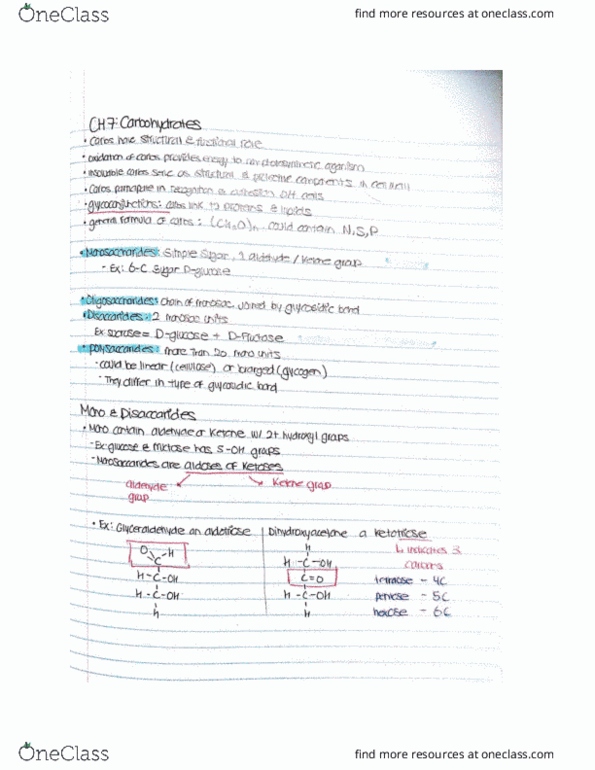 OneClass
find more resources at oneclass.com
CH 7: Carbohydrates
• Carbs have structural & functional role
• oxidation of carbs provides energy to
• insoluble carbs serve as structural & protective components in cell wall
• Carbs participate in recognition & adhesion cells
• glycoconjunctions: carbs link to proteins & lipids
• general formula of carbs: (CH₂O)n could contain N, S, P
• Monosaccharides: Simple sugar, 1 aldehyde / Ketone group
- Ex: 6-C sugar D-glucose
• Oligosaccharides: chain of monosac. joined by glycosidic bond
• Disaccarides: 2 monosac units
Ex: sucrose = D-glucose + D-fructose
• polysaccarides: more than 20 mono units
- could be linear (cellulose) or branged (glycogen)
- They differ in type of glycosidic bond
Mono & Disaccarides
• Mono contain aldehyde or Ketone w/ 2+ hydroxyl groups
- Ex: glucose & fructose has 5-OH groups
- Monosaccarides are aldoses of Ketoses
aldehyde group
Ketone group
• Ex: Glyceraldehyde an aldotriose | Dihydroxyacetone a Ketotriose
↳ indicates 3 carbons
O
C-H
H-C-OH
H-C-OH
H
H
H-C-OH
C=O
H-C-OH
H
tetraose - 4C
pentose - 5C
hexose - 6C
OneClass
find more resources at oneclass.com